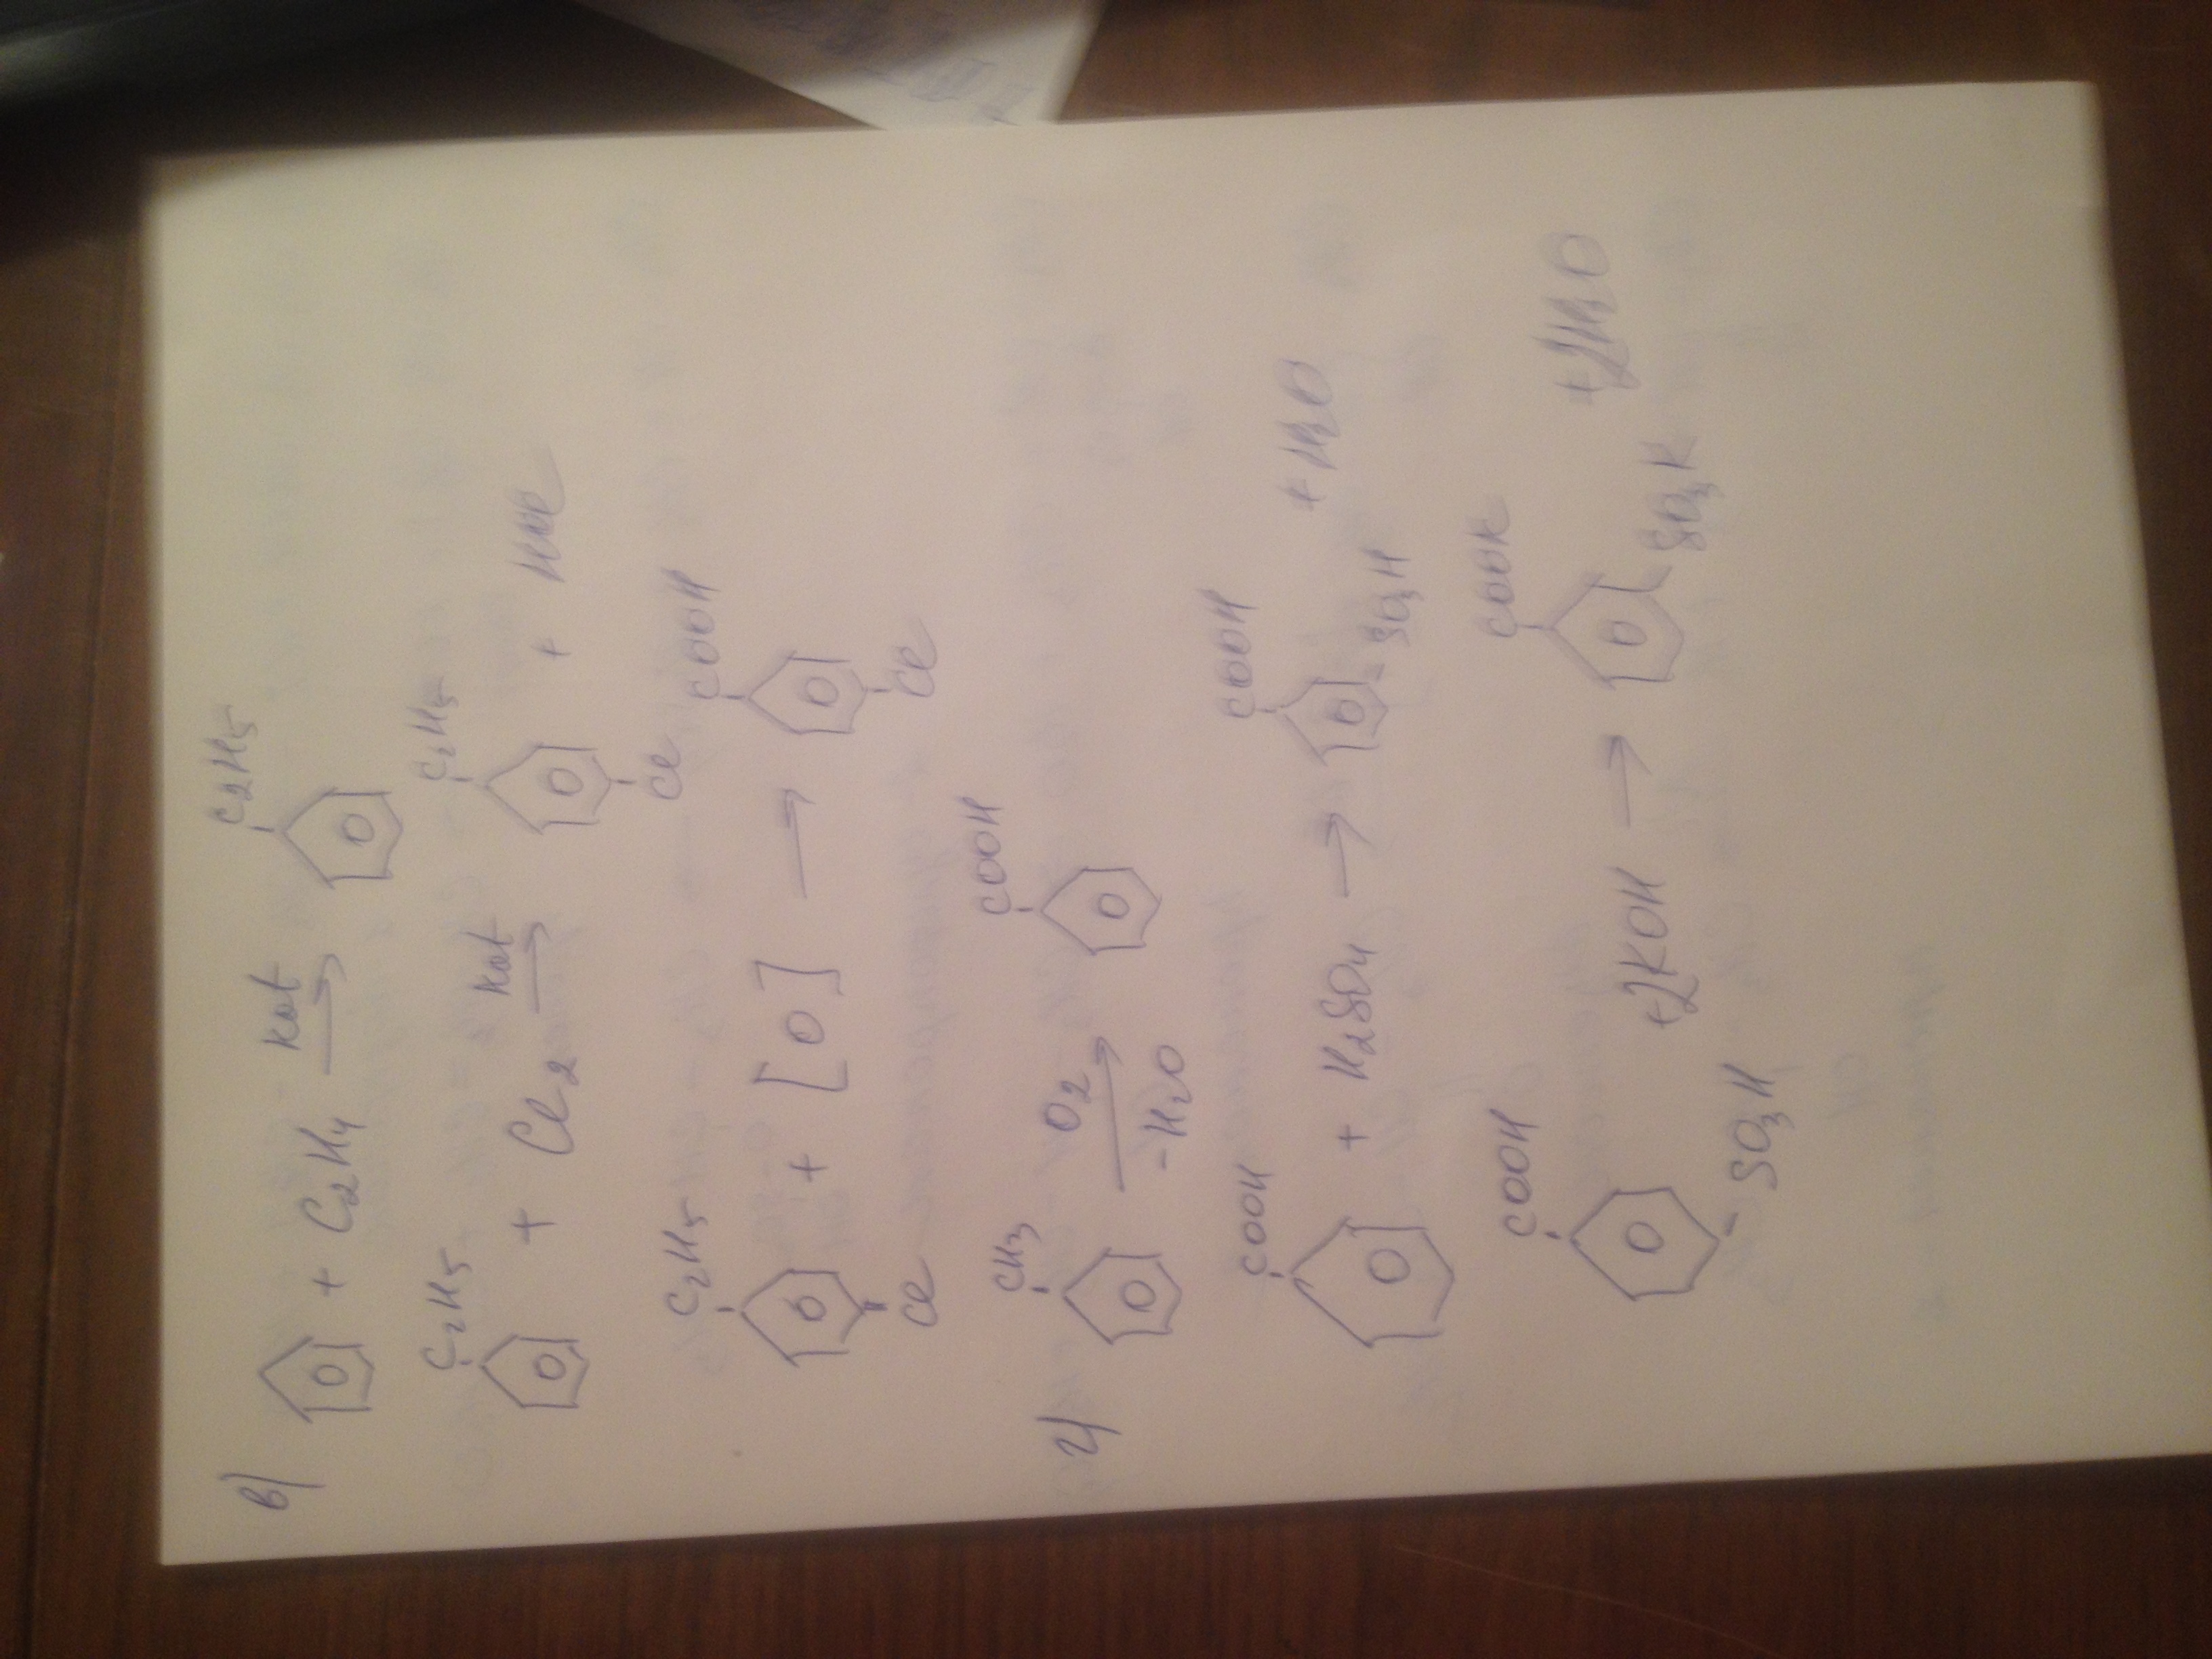 в)
+ C2H4 kat → C2H5
C2H5 + Cl2 kat → C2H5 Cl + HCl
C2H5 Cl + [O] → COOH Cl
г)
CH3 O2 → -H2O COOH
COOH + H2SO4 → COOH SO3H + H2O
COOH SO3H +2KOH → COOK SO3K +2H2O